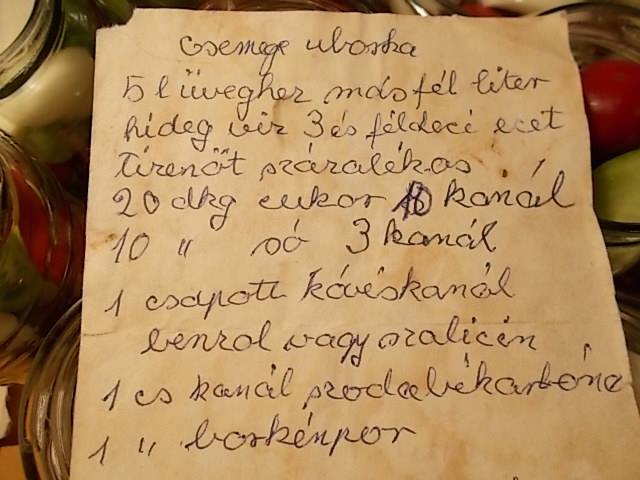 Csemege uborka
5 l üveghez másfél liter
hideg víz 3 és féldeci ecet
tizenöt százalékos
20 dkg cukor kanál
10 " só 3 kanál
1 csapott kávéskanál
benzol vagy szalicin
1 cs kanál szodabékarbóna
1 " borkénpor